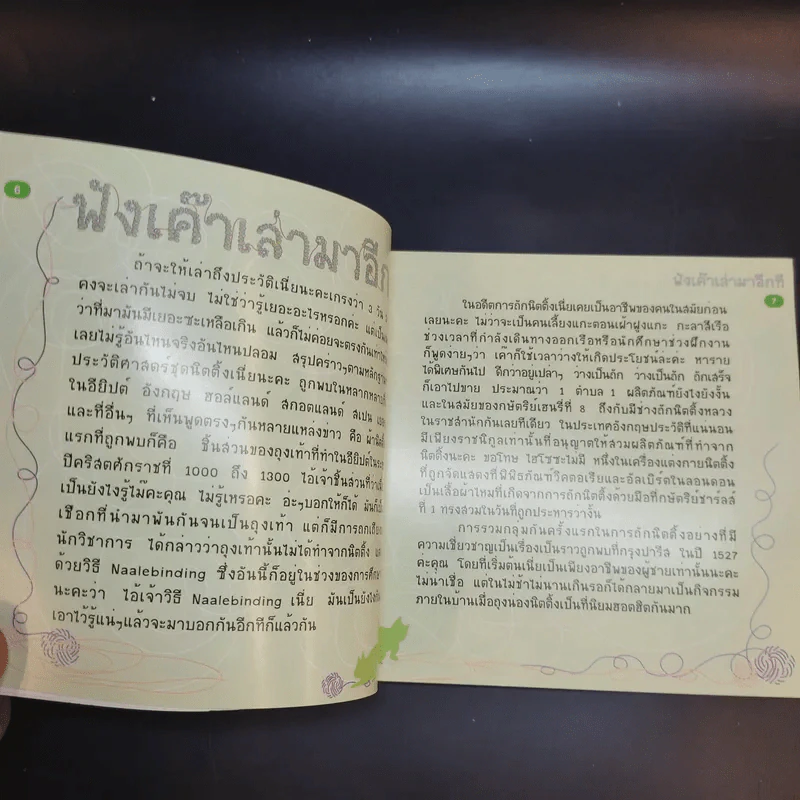 6
ฟังเค๊าเล่ามาอีก
ถ้าจะให้เล่าถึงประวัติเนี่ยนะคะเกรงว่า 3 วัน
คงจะเล่ากันไม่จบ ไม่ใช่ว่ารู้เยอะอะไรหรอกค่ะ แต่เป็น
ว่าที่มามันมีเยอะซะเหลือเกิน แล้วก็ไม่ค่อยจะตรงกันเท่าไหร่
เลยไม่รู้อันไหนจริงอันไหนปลอม สรุปคร่าวๆตามหลักฐาน
ประวัติศาสตร์ชุดนิตติ้งเนี่ยนะคะ ถูกพบในหลากหลายที่
ในอียิปต์ อังกฤษ ฮอล์แลนด์ สกอตแลนด์ สเปน
และที่อื่นๆ ที่เห็นพูดตรงๆกันหลายแหล่งข่าว คือ ผ้านิตติ้ง
แรกที่ถูกพบก็คือ ชิ้นส่วนของถุงเท้าที่ทำในอียิปต์ในช่วง
ปีคริสตศักราชที่ 1000 ถึง 1300 ไอ้เจ้าชิ้นส่วนที่ว่าเนี่ย
เป็นยังไงรู้ไม๊คะคุณ ไม่รู้เหรอคะ อ่ะๆบอกให้ก็ได้ มันก็เป็น
เชือกที่นำมาพันกันจนเป็นถุงเท้า แต่ก็มีการถกเถียง
นักวิชาการ ได้กล่าวว่าถุงเท้านั้นไม่ได้ทำจากนิตติ้ง
ด้วยวิธี Naalebinding ซึ่งอันนี้ก็อยู่ในช่วงของการศึกษา
นะคะว่า ไอ้เจ้าวิธี Naalebinding เนี่ย มันเป็นยังไงกัน
เอาไว้รู้แน่ๆแล้วจะมาบอกกันอีกทีก็แล้วกัน
ฟังเค๊าเล่ามาอีกที
7
ในอดีตการถักนิตติ้งเนี่ยเคยเป็นอาชีพของคนในสมัยก่อน
เลยนะคะ ไม่ว่าจะเป็นคนเลี้ยงแกะตอนเฝ้าฝูงแกะ กะลาสีเรือ
ช่วงเวลาที่กำลังเดินทางออกเรือหรือนักศึกษาช่วงฝึกงาน
ก็พูดง่ายๆว่า เค้าก็ใช้เวลาว่างให้เกิดประโยชน์ล่ะค่ะ หาราย
ได้พิเศษกันไป ดีกว่าอยู่เปล่าๆ ว่างเป็นถัก ว่างเป็นถัก ถักเสร็จ
ก็เอาไปขาย ประมาณว่า 1 ตำบล 1 ผลิตภัณฑ์ยังไงยังงั้น
และในสมัยของกษัตริย์เฮนรี่ที่ 8 ถึงกับมีช่างถักนิตติ้งหลวง
ในราชสำนักกันเลยทีเดียว ในประเทศอังกฤษประวัติที่แน่นอน
มีเพียงราชนิกูลเท่านั้นที่อนุญาตให้สวมผลิตภัณฑ์ที่ทำจาก
นิตติ้งนะคะ ขอโทษ ไฮโซซะไม่มี หนึ่งในเครื่องแต่งกายนิตติ้ง
ที่ถูกจัดแสดงที่พิพิธภัณฑ์วิคตอเรียและอัลเบิร์ตในลอนดอน
เป็นเสื้อผ้าไหมที่เกิดจากการถักนิตติ้งด้วยมือที่กษัตริย์ชาร์ลส์
ที่ 1 ทรงสวมในวันที่ถูกประหารวางั้น
การรวมกลุ่มกันครั้งแรกในการถักนิตติ้งอย่างที่มี
ความเชี่ยวชาญเป็นเรื่องเป็นราวถูกพบที่กรุงปารีส ในปี 1527
ค่ะคุณ โดยที่เริ่มต้นเนี่ยเป็นเพียงอาชีพของผู้ชายเท่านั้นนะคะ
ไม่น่าเชื่อ แต่ในไม่ช้าไม่นานเกินรอก็ได้กลายมาเป็นกิจกรรม
ภายในบ้านเมื่อถุงน่องนิตติ้งเป็นที่นิยมฮอตฮิตกันมาก